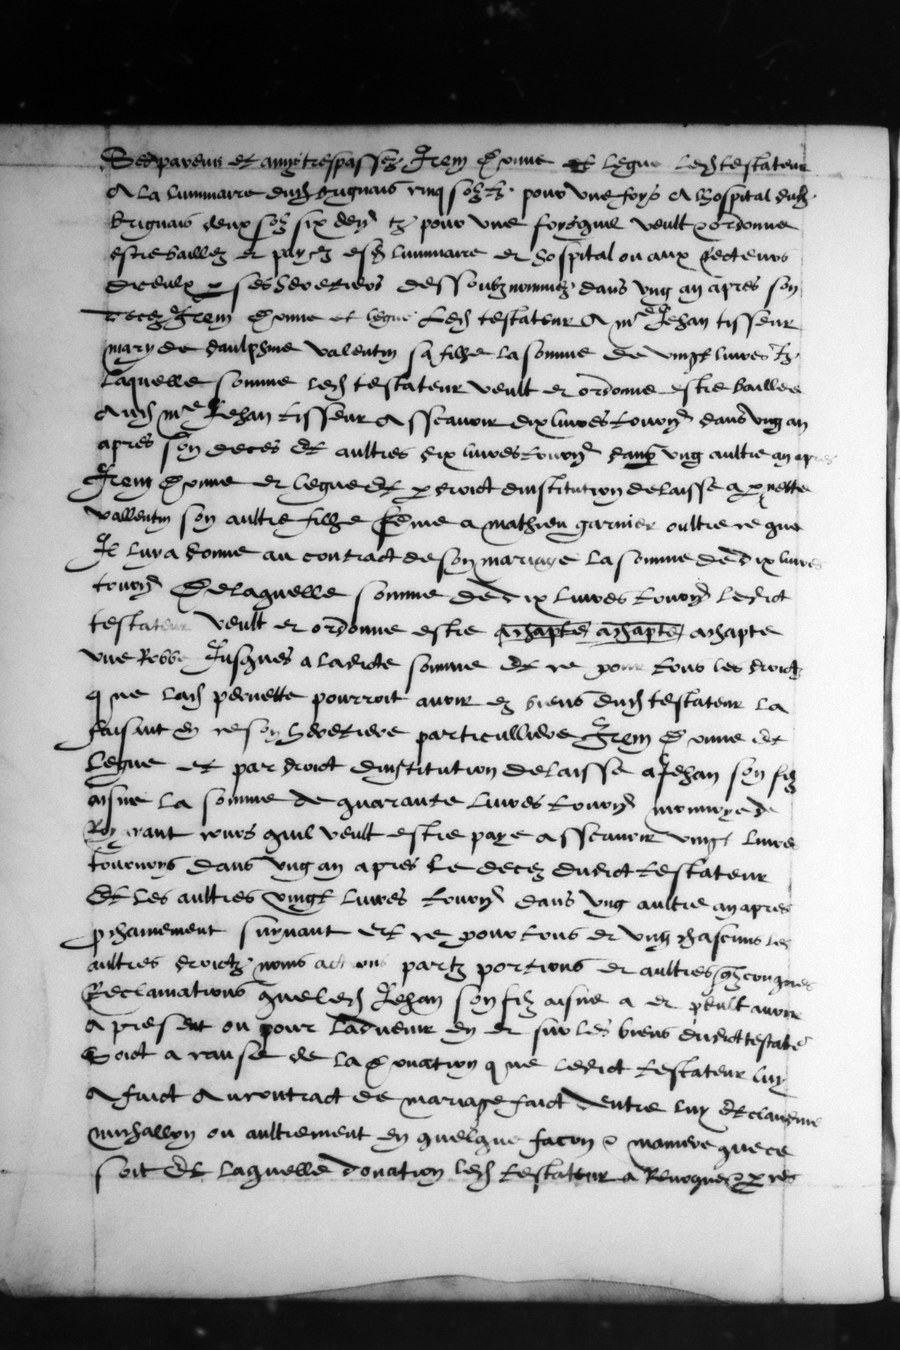 Ses parens et amys trespassez Item donne et legue led testateur
a la luminaire dud brignais cinq solz tz pour une foys a lhospital dud
brignais deux solz six den tz pour une foys quil veult & ordonne
estre baillez et payez esd luminaire et hospital ou aux recteurs
diceulx p ses heretiers dessoubz nommez dans ung an apres son
decez Item donne et legue led testateur a me Jehan tisseur
mary de daulphine valentin sa fille la somme de vingt livres tz
laquelle somme led testateur veult et ordonne estre baillee
aud me Jehan tisseur assavoir dix livres tourn dans ung an
apres son deces et aultres dix livres tourn dans ung aultre an apres
Item donne et legue et p droict dinstitution delaisse a pnette
vallentin son aultre fille feme a mathieu garnier oultre ce que
Il luy a donne au contract de son mariage la somme de dix livres
tourn De laquelle somme de dix livres tourn ledict
testateur veult et ordonne estre achapte achapte achapte
une Robbe Jusques a ladicte somme et ce pour tous les droictz
que lad pernette pourroit avoir ez biens dud testateur la
faisant en ce son heretiere particulliere Item donne et
legue et par droict dinstitution delaisse a Jehan son filz
aisne la somme de quarante livres tourn monnoye de
Roy ayant cours quil veult estre paye assavoir vingt livres
tournoys dans ung an apres le decez dudict testateur
Et les aultres vingt livres tourn dans ung aultre an apres
prochainement suyvant et ce pour tous et ung chascuns les
aultres droictz noms actions partz portions et aultres quelzconques
Reclamations que led Jehan son filz aisne a et peult avoir
a present ou pour ladvenir en et sur les biens dudict testateur
Soit a cause de la donation que ledict testateur luy
a faict au contract de mariage faict entre luy et claudine
michallon ou aultrement en quelque facon & maniere que ce
soit Et laquelle donation led testateur a Revoque & p ces